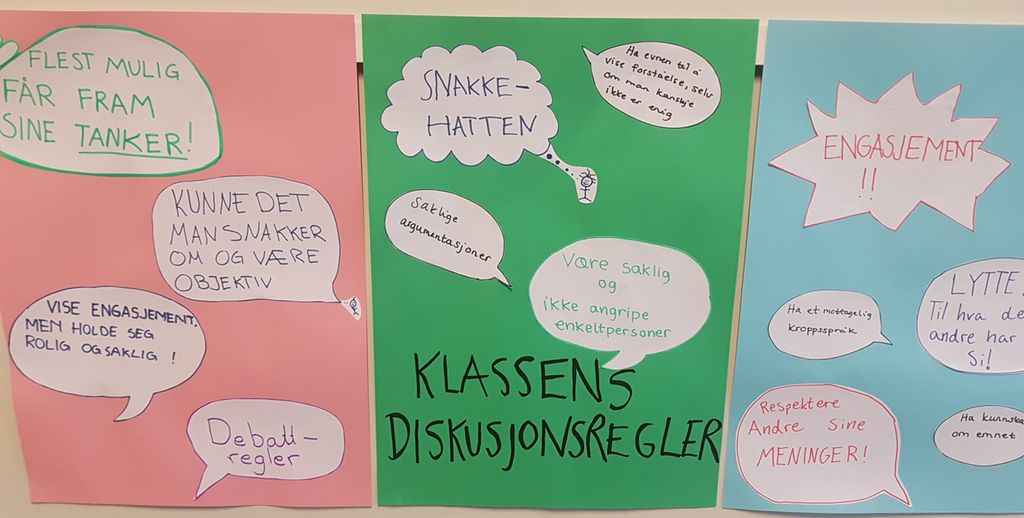 FLEST MULIG
FÅR FRAM
SINE TANKER!
KUNNE DET
MAN SNAKKER
OM OG VÆRE
OBJEKTIV
VISE ENGASJEMENT,
MEN HOLDE SEG
ROLIG OG SAKLIG !
Debatt-
regler
SNAKKE-
HATTEN
Ha evnen til å
vise forståelse, selv
om man kanskje
ikke er enig
Saklige
argumentasjoner
Være saklig
og
ikke angripe
enkeltpersoner
KLASSENS
DISKUSJONSREGLER
ENGASJEMENT
!!
LYTTE!
Til hva de
andre har
Si!
Ha et mottagelig
kroppsspråk
Respektere
Andre sine
MENINGER!
Ha
om emnet